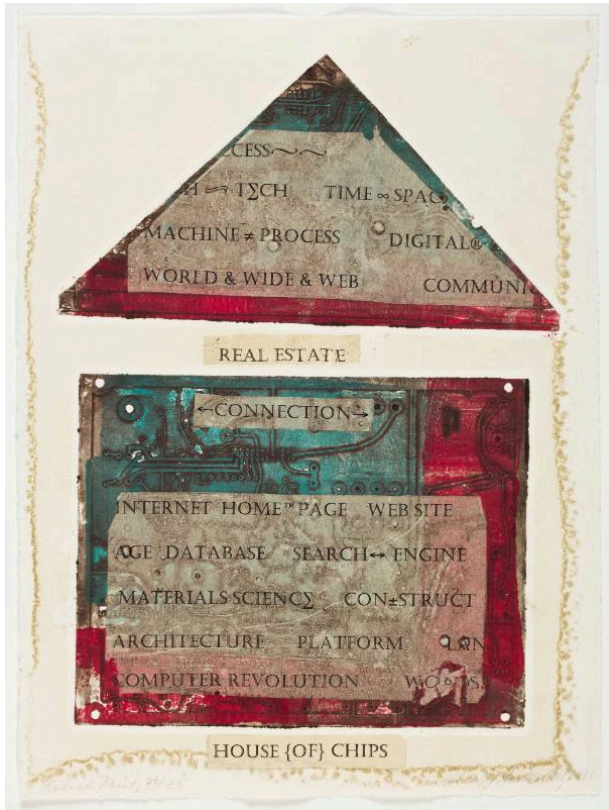 CCESS～.～
TΣCH TIME ∞ SPAC
MACHINE ≠ PROCESS DIGITAL®
WORLD & WIDE & WEB COMMUNI
REAL ESTATE
←CONNECTION→
INTERNET HOME™PAGE WEB SITE
AGE DATABASE SEARCH↔ENGINE
MATERIALS SCIENCΣ CON±STRUCT
ARCHITECTURE PLATFORM
COMPUTER REVOLUTION
HOUSE {OF} CHIPS